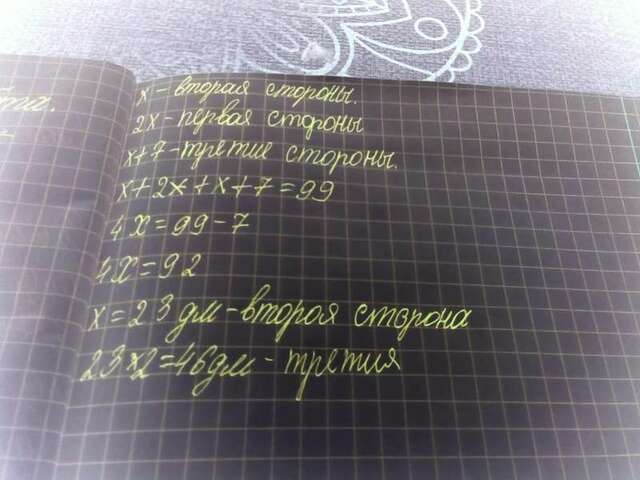 та.
x - вторая стороны.
2x - первая стороны
x + 7 - третие стороны.
x + 2x + x + 7 = 99
4x = 99 - 7
4x = 92
x = 23 дм - вторая сторона
23 × 2 = 46 дм - третия